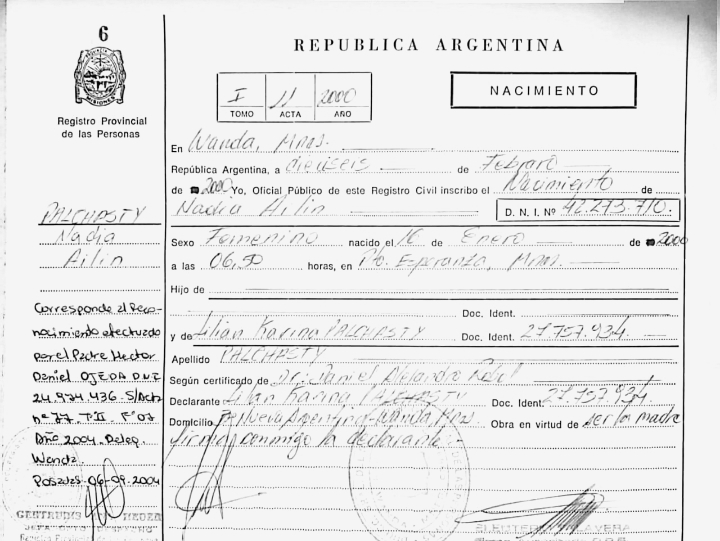 6
REPUBLICA ARGENTINA
PROVINCIA DE MISIONES
Registro Provincial
de las Personas
I 11 2000
TOMO ACTA AÑO
NACIMIENTO
En Wanda, Mnes.
República Argentina, a dieciseis de Febrero
de 2000 Yo, Oficial Público de este Registro Civil inscribo el Nacimiento de
Nadia Ailin D. N. I. Nº 42.273.710.
Sexo Femenino nacido el 16 de Enero de 2000
a las 06,50 horas, en Pto. Esperanza, Mnes.
Hijo de
Doc. Ident.
y de Lilian Karina PALCHASTY Doc. Ident. 27.757.934
Apellido PALCHASTY
Según certificado de Dr. Daniel Alejandro
Declarante Lilian Karina PALCHASTY Doc. Ident. 27.757.934
Domicilio Nueva Argentina-Wanda, Mnes. Obra en virtud de ser la madre
firma conmigo la declarante.-
PALCHASTY
Nadia
Ailin
Corresponde al Reco-
nocimiento efectuado
por el Padre Hector
Daniel OJEDA D.N.I.
24.974.436. S/Acta
nº 77 T:II Fº07
Año 2004. Deleg.
Wanda.
Posadas 06-09-2004
GERTRUDIS